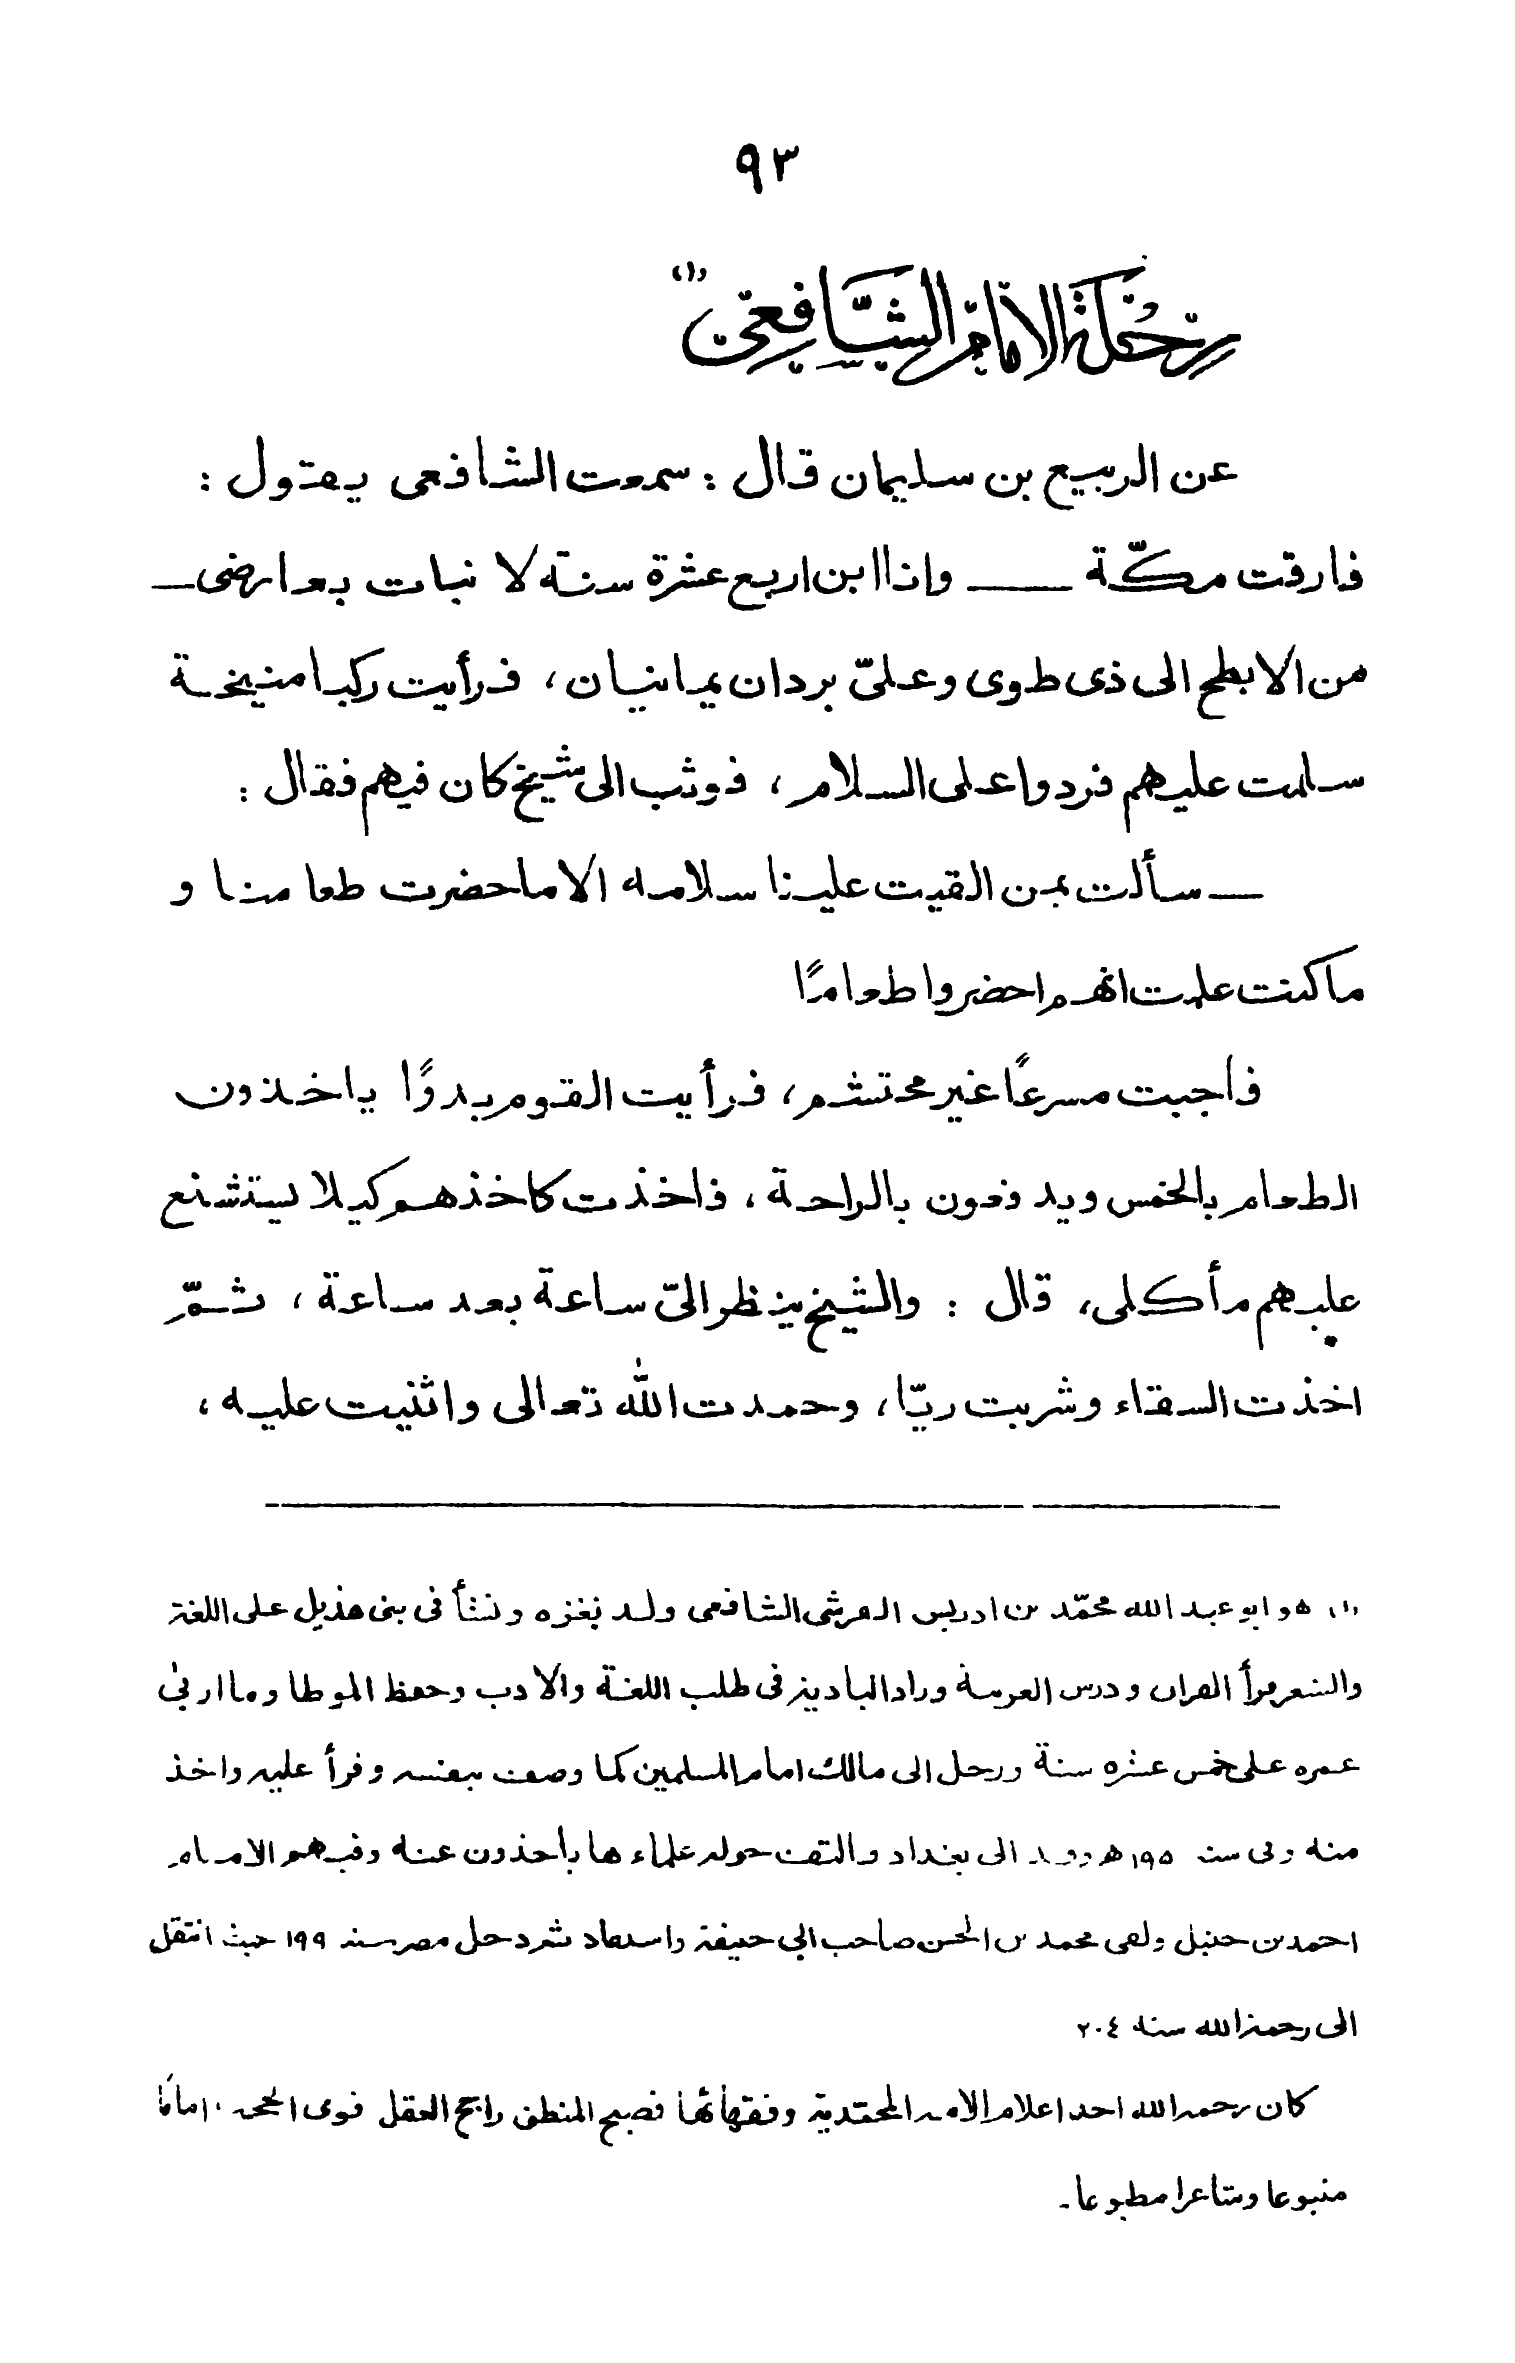 ٩٣
رحلة الامام الشافعي (١)
عن الربيع بن سليمان قال : سمعت الشافعى يقول :
فارقت مكّة ــــ وانا ابن اربع عشرة سنة لا نبات بعارضى ــ
من الابطح الى ذى طوى وعلىّ بردان يمانيان ، فرأيت ركبا منيخة
سلمت عليهم فردوا على السلام ، فوثب الى شيخ كان فيهم فقال :
ــ سألت بمن القيت علينا سلامه الا ما حضرت طعامنا و
ما كنت علمت انهم احضروا طعامًا
فاجبت مسرعًا غير محتشم ، فرأيت القوم بدوًا ياخذون
الطعام بالخمس ويدفعون بالراحة ، فاخذت كاخذهم كيلا يستشنع
عليهم مأكلى ، قال : والشيخ ينظر الىّ ساعة بعد ساعة ، ثمّ
اخذت السقاء وشربت ريّا ، وحمدت الله تعالى واثنيت عليه ،
(١) هو ابو عبد الله محمّد بن ادريس القرشى الشافعى ولد بغزه ونشأ فى بنى هذيل على اللغة
والشعر قرأ القران ودرس العربية وراد البادية فى طلب اللغة والادب وحفظ الموطا وما اربى
عمره على خمس عشره سنة ورحل الى مالك امام المسلمين كما وصف بنفسه وقرأ عليه واخذ
منه وفى سنه ١٩٥ ه‍ الى بغداد والتف حوله علماءها يأخذون عنه وفيهم الامام
احمد بن حنبل ولقى محمد بن الحسن صاحب ابي حنيفة واستفاد ثم دخل مصر سنه ١٩٩ حيث انتقل
الى رحمة الله سنه ٢٠٤
كان رحمه الله احد اعلام الامه المحمّدية وفقهائها فصيح المنطق راجح العقل قوى الحجه ، امامًا
متبوعا وشاعرا مطبوعا .